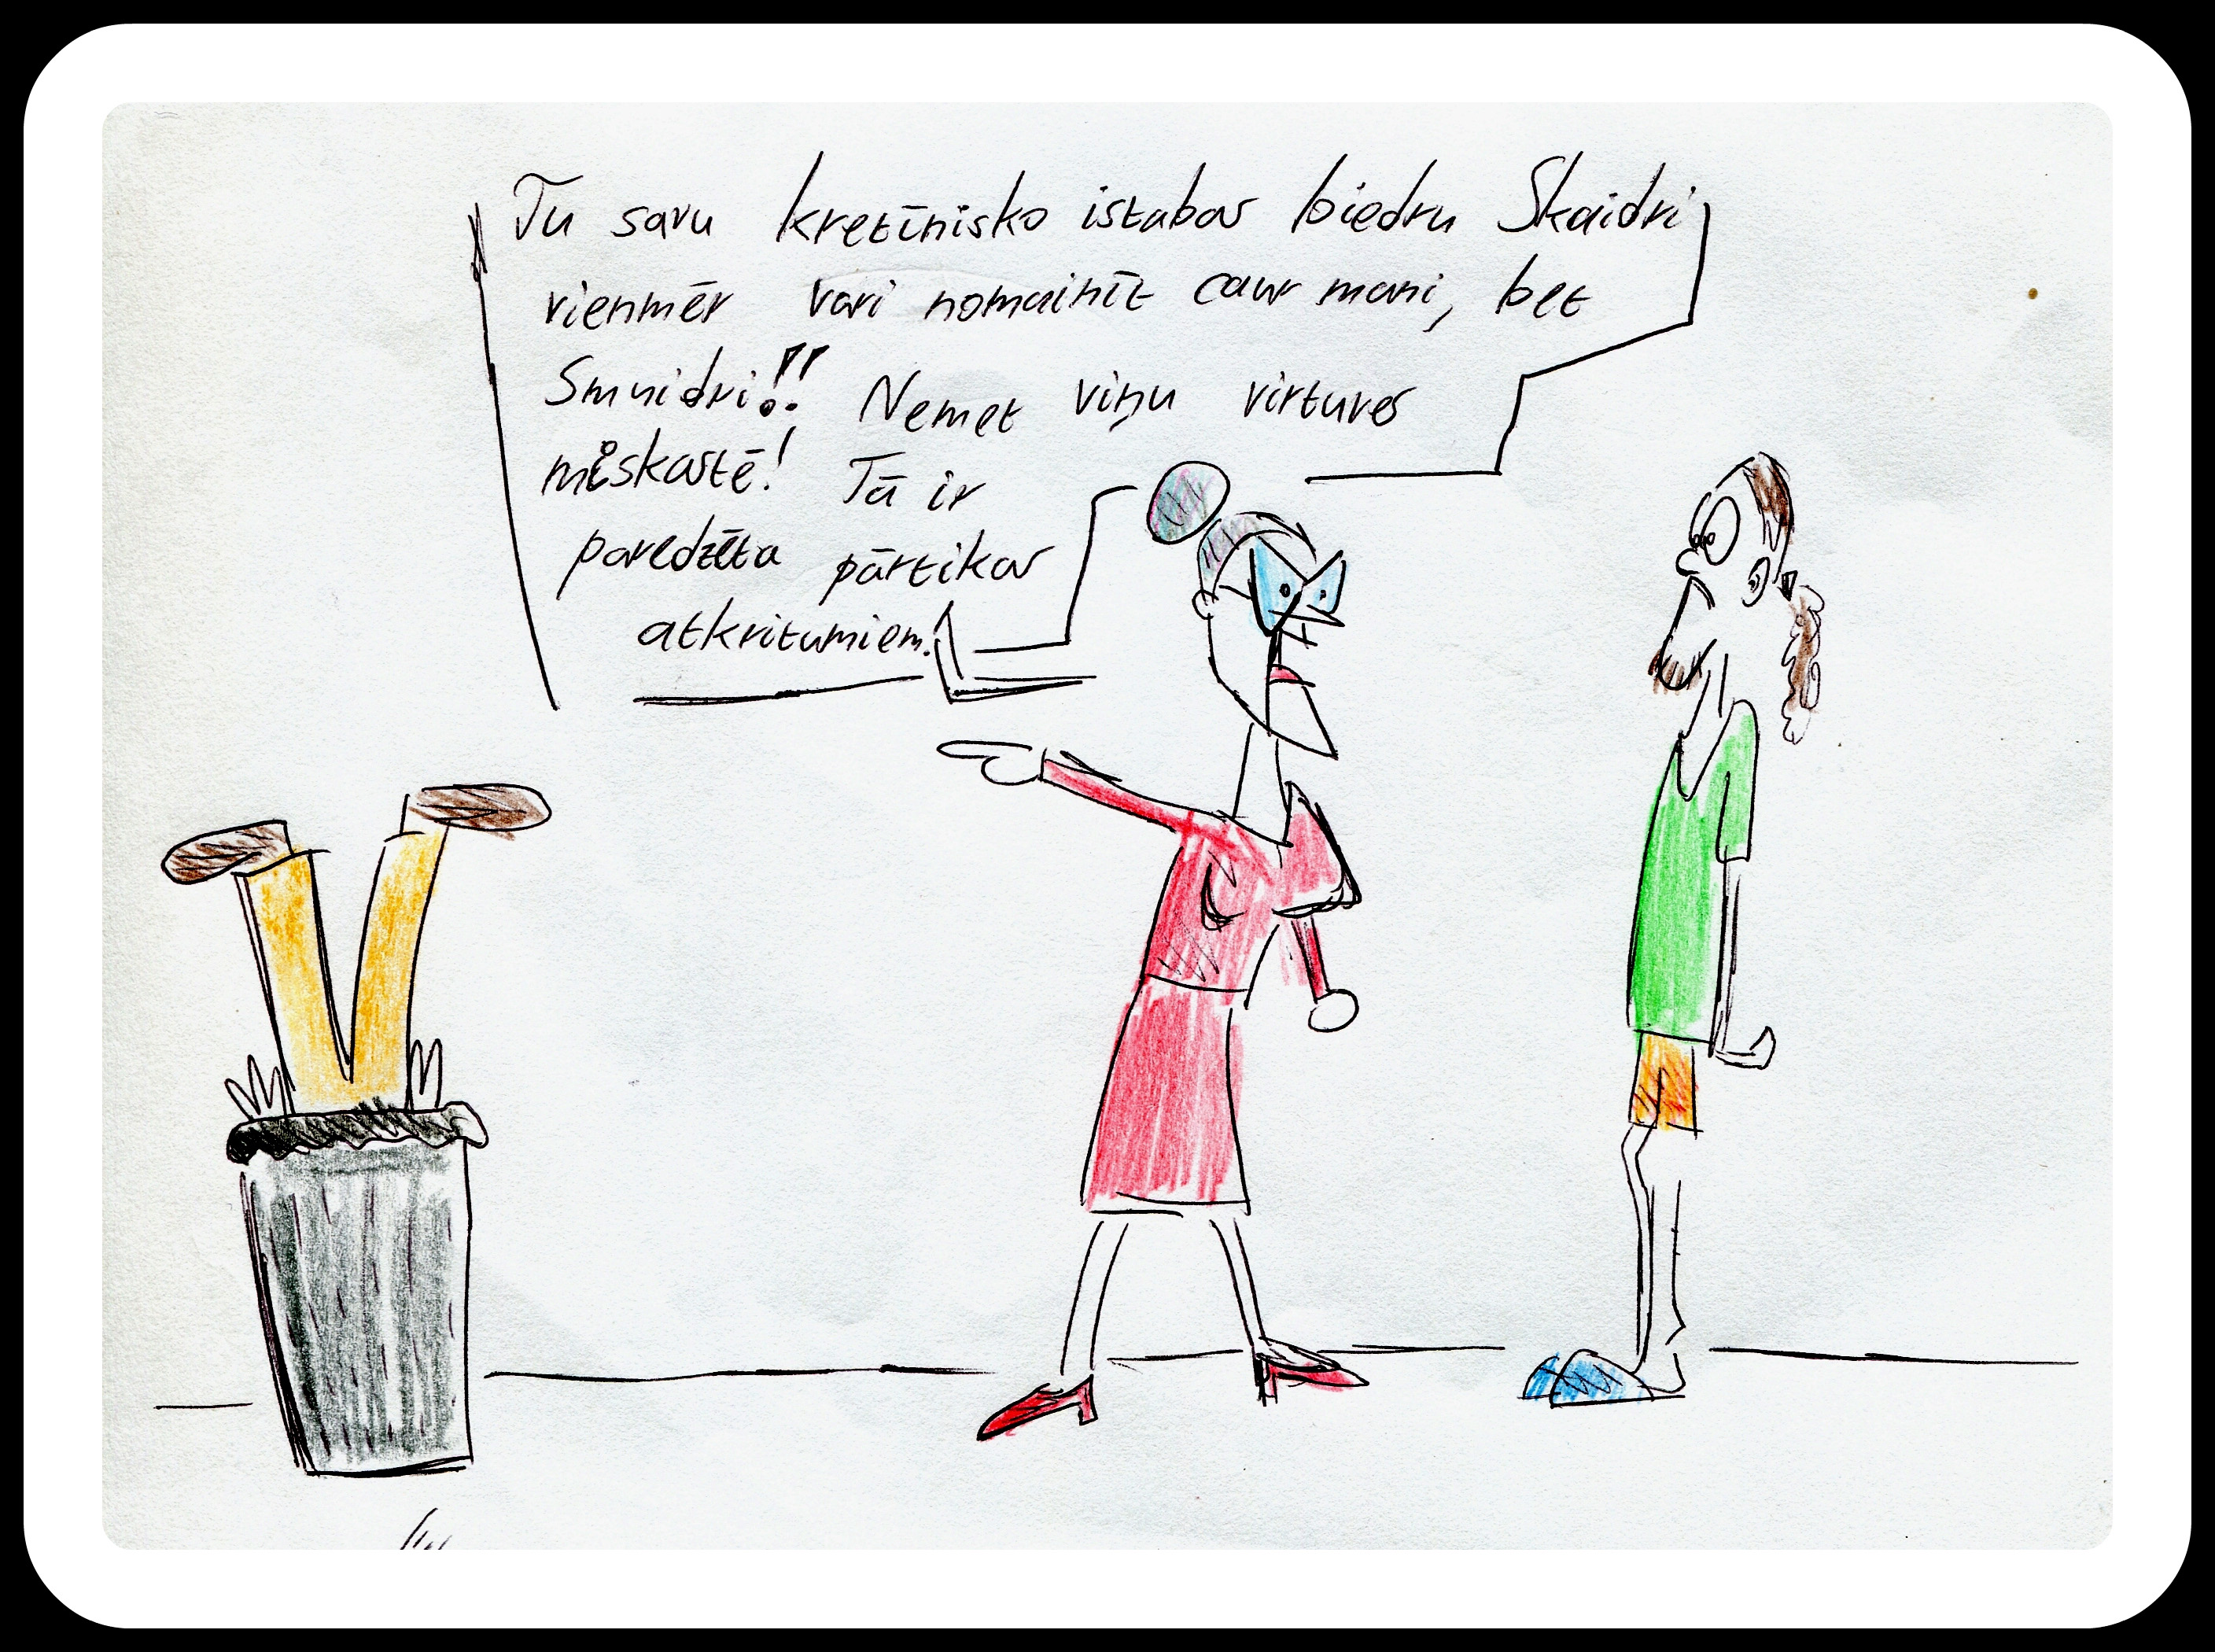 Tu savu kretīnisko istabas biedru Skaidri
vienmēr vari nomainīt caur mani, bet
Smuidri!! Nemet viņu virtuves
miskastē! Tā ir
paredzēta pārtikas
atkritumiem.